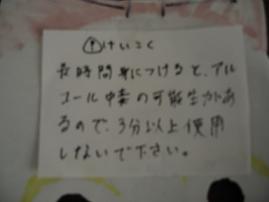 けいこく
長時間身につけると、アル
コール中毒の可能生があ
るので、3分以上使用
しないで下さい。